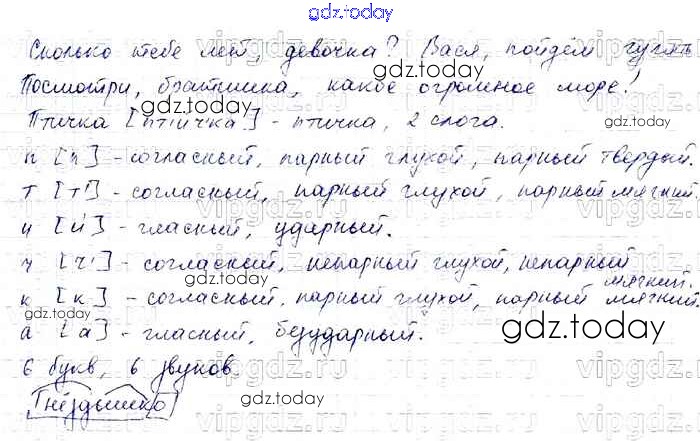 gdz.today
Сколько тебе лет, девочка? Вася, пойдём гулять
gdz.today
Посмотри, братишка, какое огромное море!
gdz.today
Птичка [пт'ичка] - птичка, 2 слога.
п [п] - согласный, парный глухой, парный твердый.
т [т'] - согласный, парный глухой, парный мягкий.
и [и́] - гласный, ударный.
ч [ч'] - согласный, непарный глухой, непарный
мягкий.
к [к] - согласный, парный глухой, парный мягкий.
gdz.today
а [а] - гласный, безударный.
gdz.today
6 букв, 6 звуков.
gdz.today
Гнёздышко